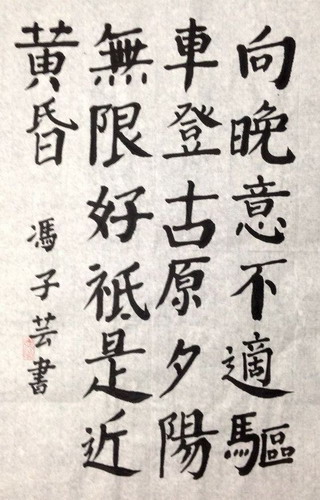 向晚意不適驅
車登古原夕陽
無限好祗是近
黃昏
馮子芸書